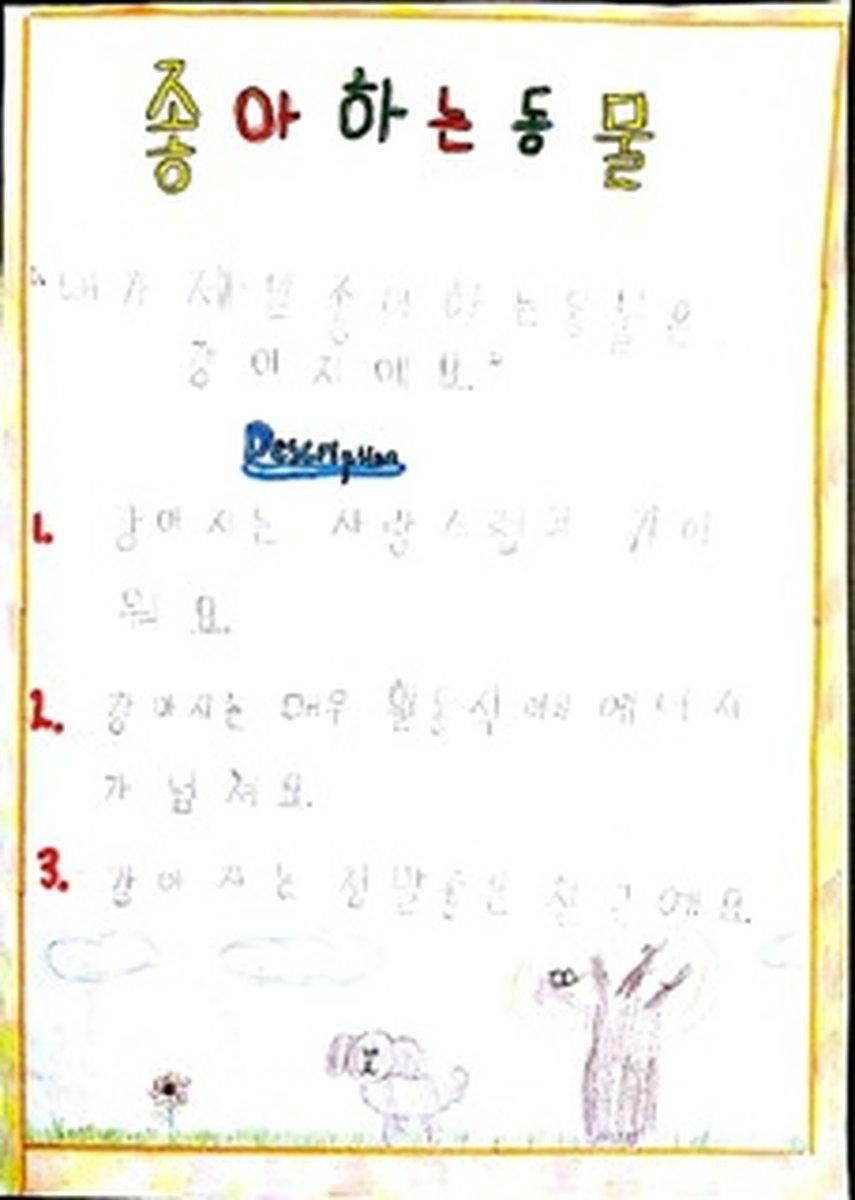 좋아하는동물
"내가 제일 좋아하는동물은
강아지예요."
Description
1. 강아지는 사랑스럽고 귀여
워요.
2. 강아지는 매우 활동식이고 에너지
가 넘쳐요.
3. 강아지는 정말좋은 친구예요.